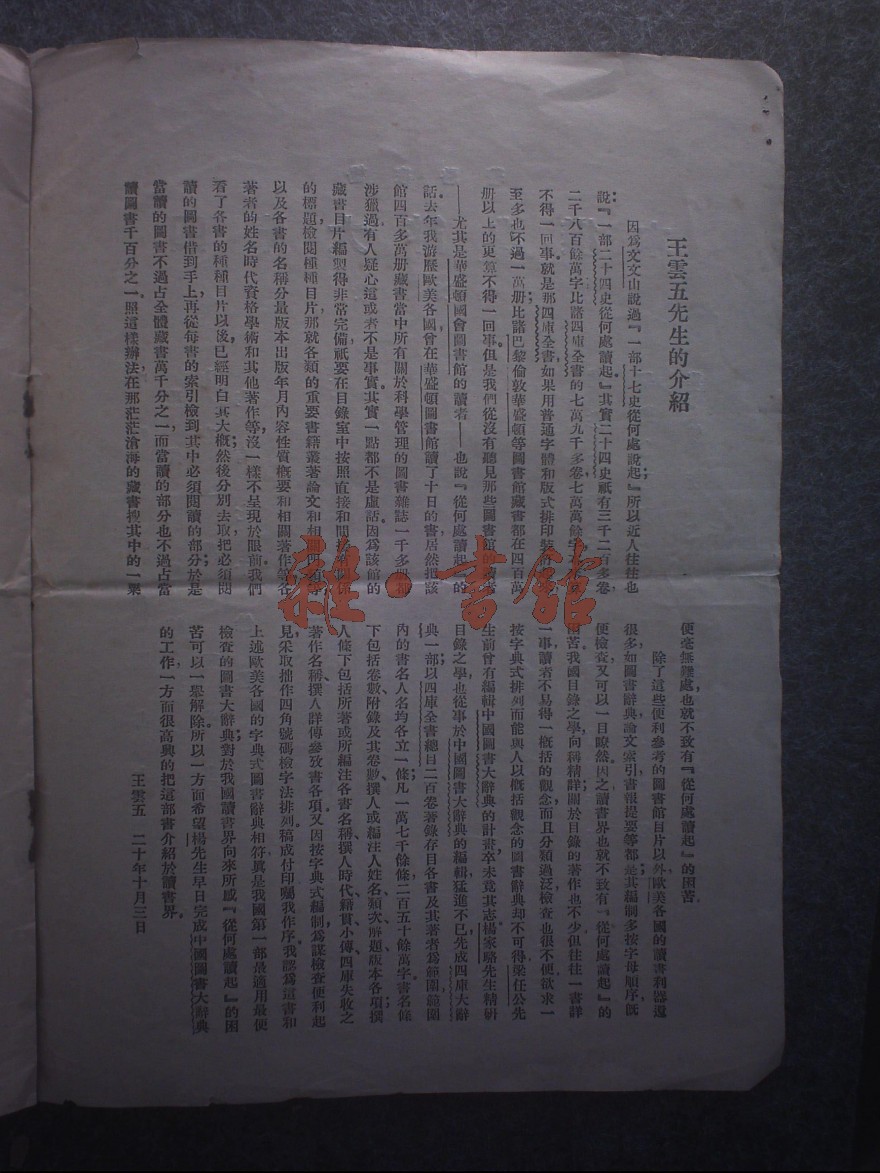 王雲五先生的介紹
因爲文文山說過『一部十七史從何處說起』所以近人往往也
說『一部二十四史從何處讀起』其實二十四史祇有三千二百多卷
二千八百餘萬字比諸四庫全書的七萬九千多卷七萬萬餘
不得一回事就是那四庫全書如果用普通字體和版式排印
至多也不過一萬册比諸巴黎倫敦華盛頓等圖書館藏書都在四百萬
册以上的更算不得一回事但是我們從沒有聽見那些圖書館的讀者
——尤其是華盛頓國會圖書館的讀者——也說『從何處讀起』的
話去年我游歷歐美各國曾在華盛頓圖書館讀了十日的書居然把該
館四百多萬册藏書當中所有關於科學管理的圖書雜誌一千多册都
涉獵過有人疑心這或者不是事實其實一點都不是虛話因爲該館的
藏書目片編製得非常完備祇要在目錄室中按照直接和間
的標題檢閱種種目片那就各類的重要書籍叢著論文和相關
以及各書的名稱分量版本出版年月內容性質概要和相關著作等各
著者的姓名時代資格學術和其他著作等沒一樣不呈現於眼前我們
看了各書的種種目片以後已經明白其大概然後分別去取把必須閱
讀的圖書借到手上再從每書的索引檢到其中必須閱讀的部分於是
當讀的圖書不過占全體藏書萬千分之一而當讀的部分也不過占當
讀圖書千百分之一照這樣辦法在那茫茫滄海的藏書搜其中的一粟
便毫無難處也就不致有『從何處讀起』的困苦
除了這些便利參考的圖書館目片以外歐美各國的讀書利器還
很多如圖書辭典論文索引書報提要等都是其編制多按字母順序旣
便檢查又可以一目瞭然因之讀書界也就不致有『從何處讀起』的
困苦我國目錄之學向稱精詳關於目錄的著作也不少但往往一書詳
一事讀者不易得一概括的觀念而且分類過泛檢查也很不便欲求一
按字典式排列而能與人以概括觀念的圖書辭典却不可得梁任公先
生前曾有編輯中國圖書大辭典的計畫卒未竟其志楊家駱先生精研
目錄之學也從事於中國圖書大辭典的編輯猛進不已先成四庫大辭
典一部以四庫全書總目二百卷著錄存目各書及其著者爲範圍範圍
內的書名人名均各立一條凡一萬七千餘條二百五十餘萬字書名條
下包括卷數附錄及其卷數撰人或編注人姓名類次解題版本各項撰
人條下包括所著或所編注各書名稱撰人時代籍貫小傳四庫失收之
著作名稱撰人詳傳參攷書各項又因按字典式編制爲謀檢查便利起
見采取拙作四角號碼檢字法排列稿成付印囑我作序我認爲這書和
上述歐美各國的字典式圖書辭典相符眞是我國第一部最適用最便
檢查的圖書大辭典對於我國讀書界向來所感『從何處讀起』的困
苦可以一舉解除所以一方面希望楊先生早日完成中國圖書大辭典
的工作一方面很高興的把這部書介紹於讀書界
王雲五　二十年十月三日
雜·書館